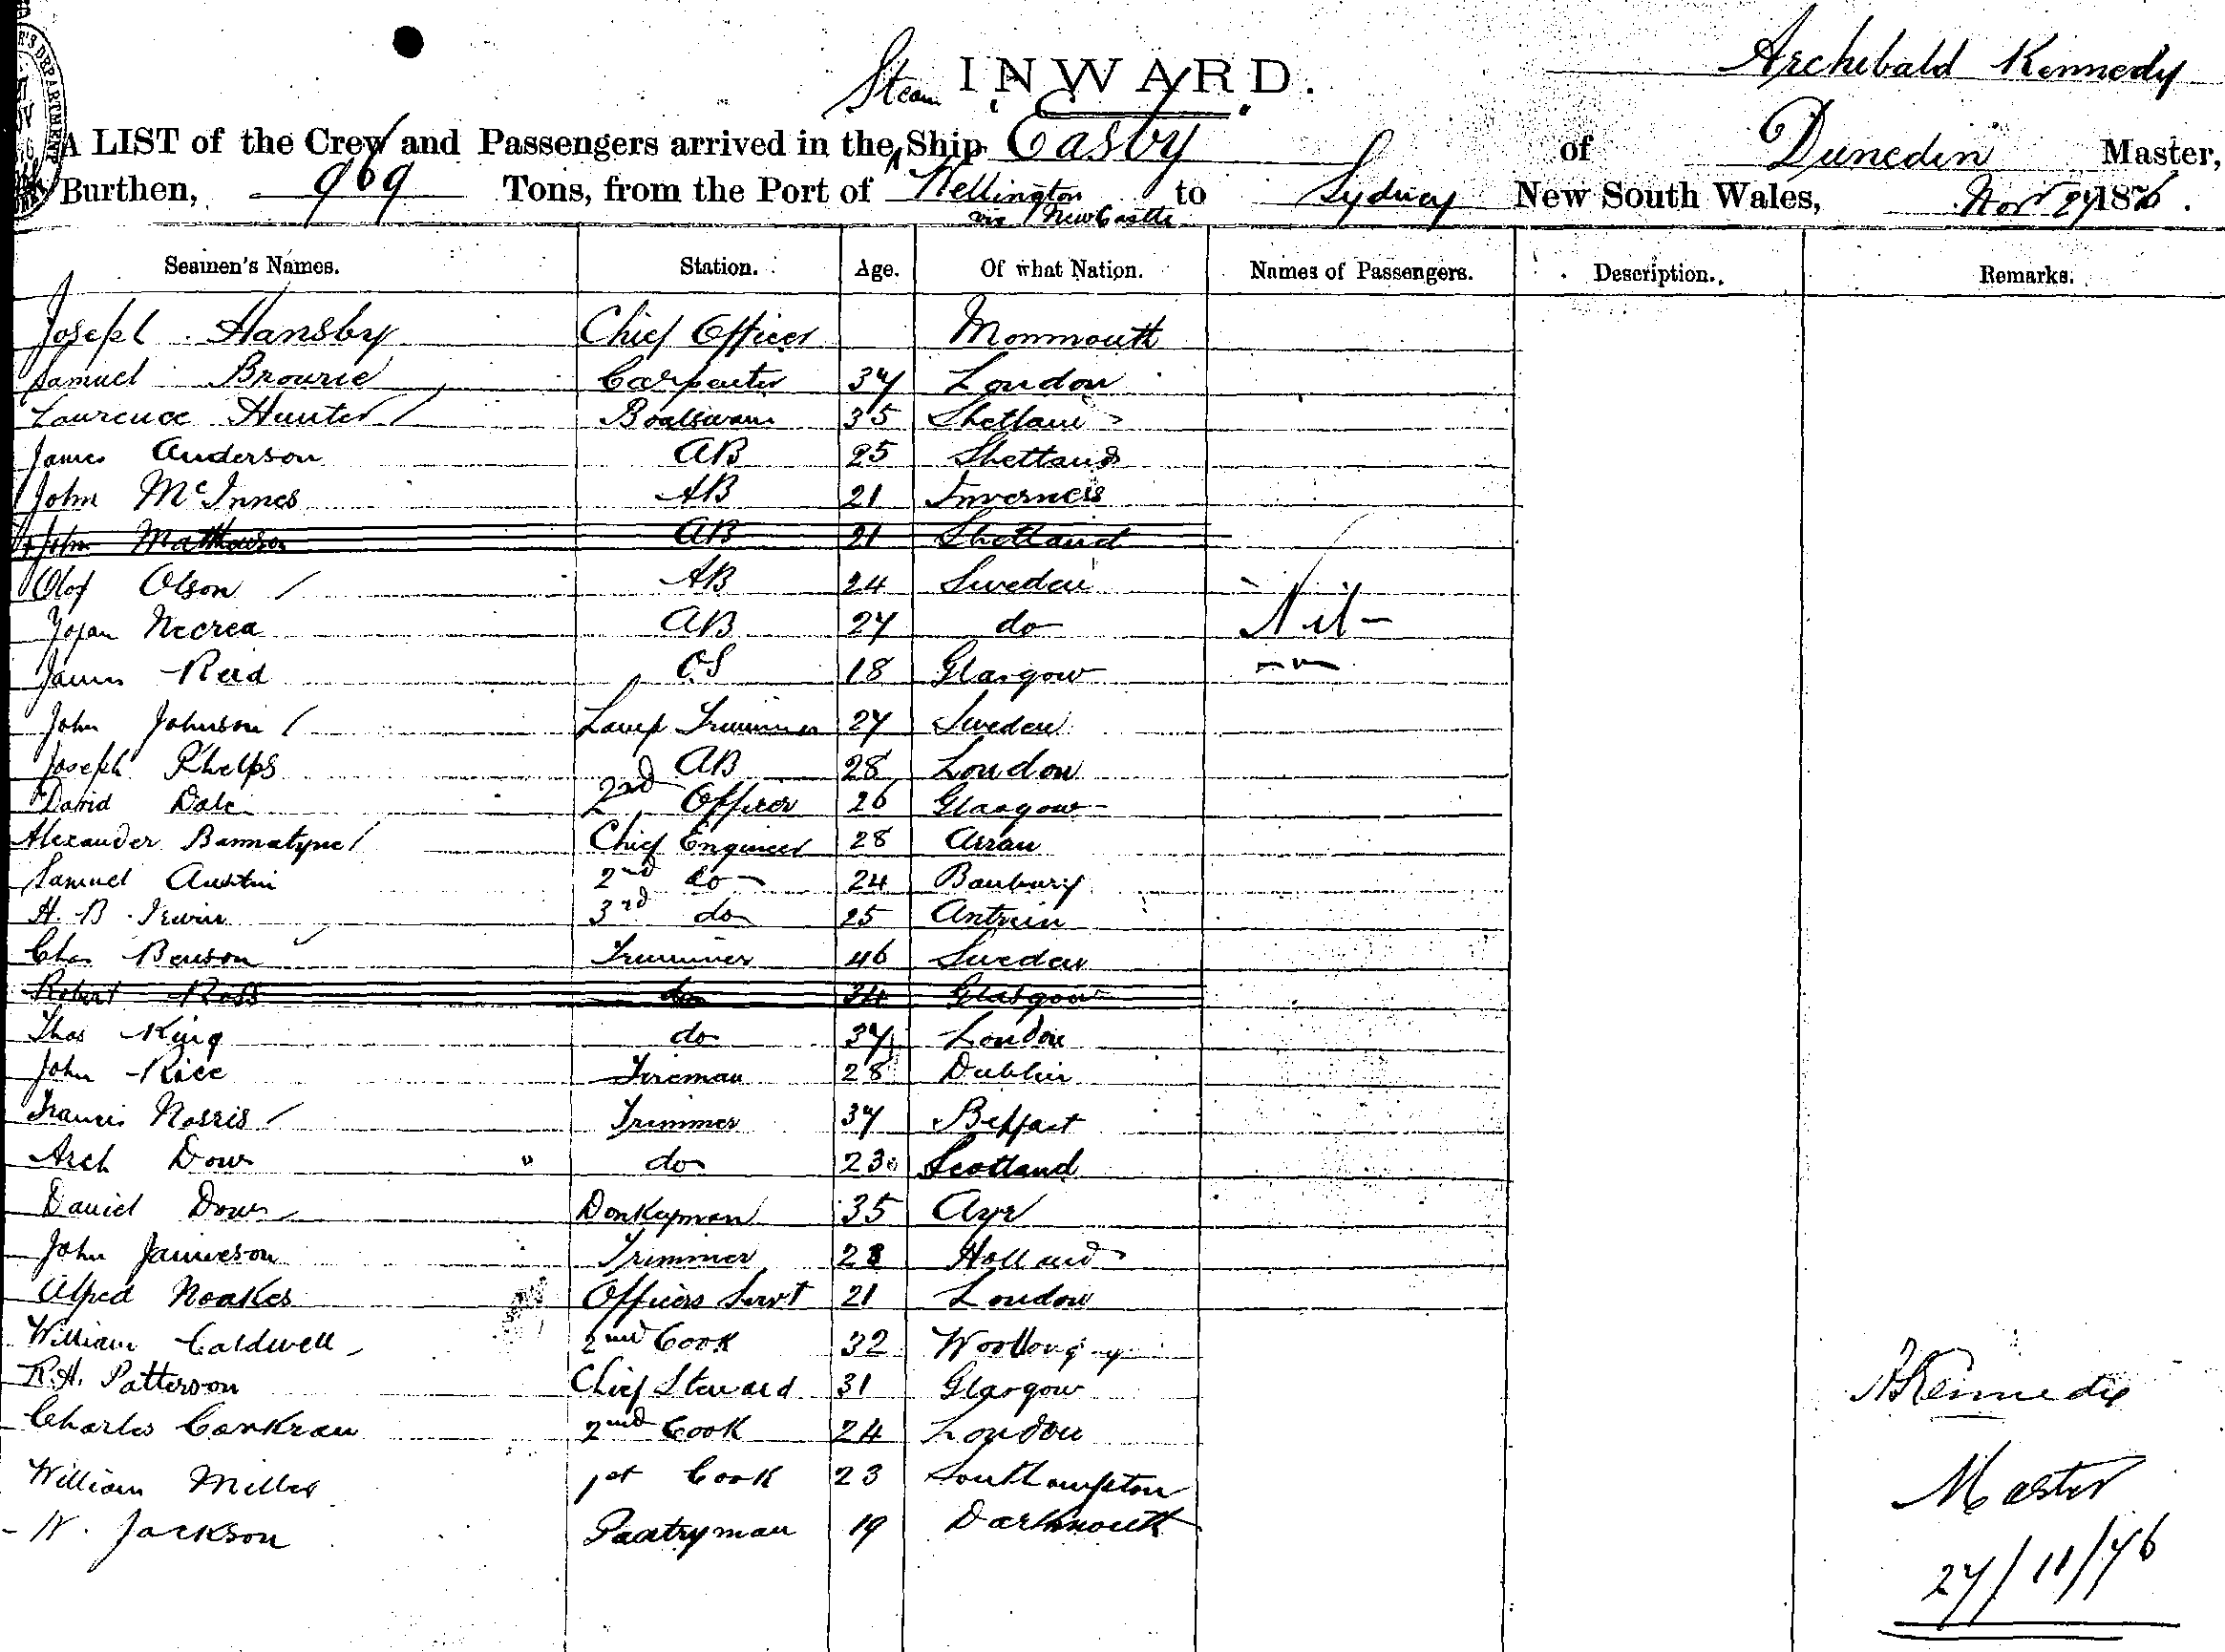 Archibald Kennedy
Steam INWARD.
A LIST of the Crew and Passengers arrived in the Ship "Easby" of Dunedin Master,
Burthen, 969 Tons, from the Port of Wellington to Sydney New South Wales, Nov 27 1876.
via NewCastle
Seamen's Names. Station. Age. Of what Nation. Names of Passengers. Description. Remarks.
Joseph Hansby Chief Officer Monmouth
Samuel Brourie Carpenter 37 London
Laurence Hunter Boatswain 35 Shetland
James Anderson AB 25 Shetland
John McInnes AB 21 Inverness
John Mathewson AB 21 Shetland
Olof Olson AB 24 Sweden
AB 27 do Nil
James Reid OS 18 Glasgow
John Johnson Lamp Trimmer 27 Sweden
Joseph Phelps AB 28 London
David Dale 2nd Officer 26 Glasgow
Alexander Bannatyne Chief Engineer 28 Arran
Samuel Austin 2nd do 24 Banbury
H. B. Irwin 3rd do 25 Antrim
Chas Benson Trimmer 46 Sweden
Robert Ross do 34 Glasgow
Thos King do 37 London
John Rice Fireman 28 Dublin
Francis Norris Trimmer 37 Belfast
Arch Dow " do 23 Scotland
Daniel Dow Donkeyman 35 Ayr
John Jamieson Trimmer 28 Holland
Alfred Noakes Officers Servt 21 London
William Caldwell 2nd Cook 32 Woollong
R.H. Patterson Chief Steward 31 Glasgow
A Kennedy
Charles Corkran 2nd Cook 24 London
William Miller 1st Cook 23 Southampton
Master
W. Jackson Pantryman 19 Dartmouth
27/11/76